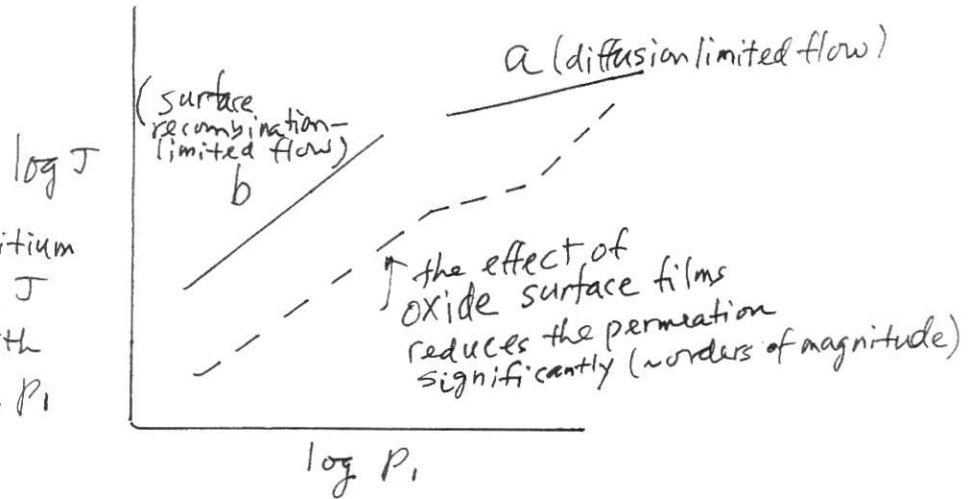 a (diffusion limited flow)
(surface
recombination-
limited flow)
b
log J
J
P₁
the effect of
oxide surface films
reduces the permeation
significantly (~orders of magnitude)
log P₁